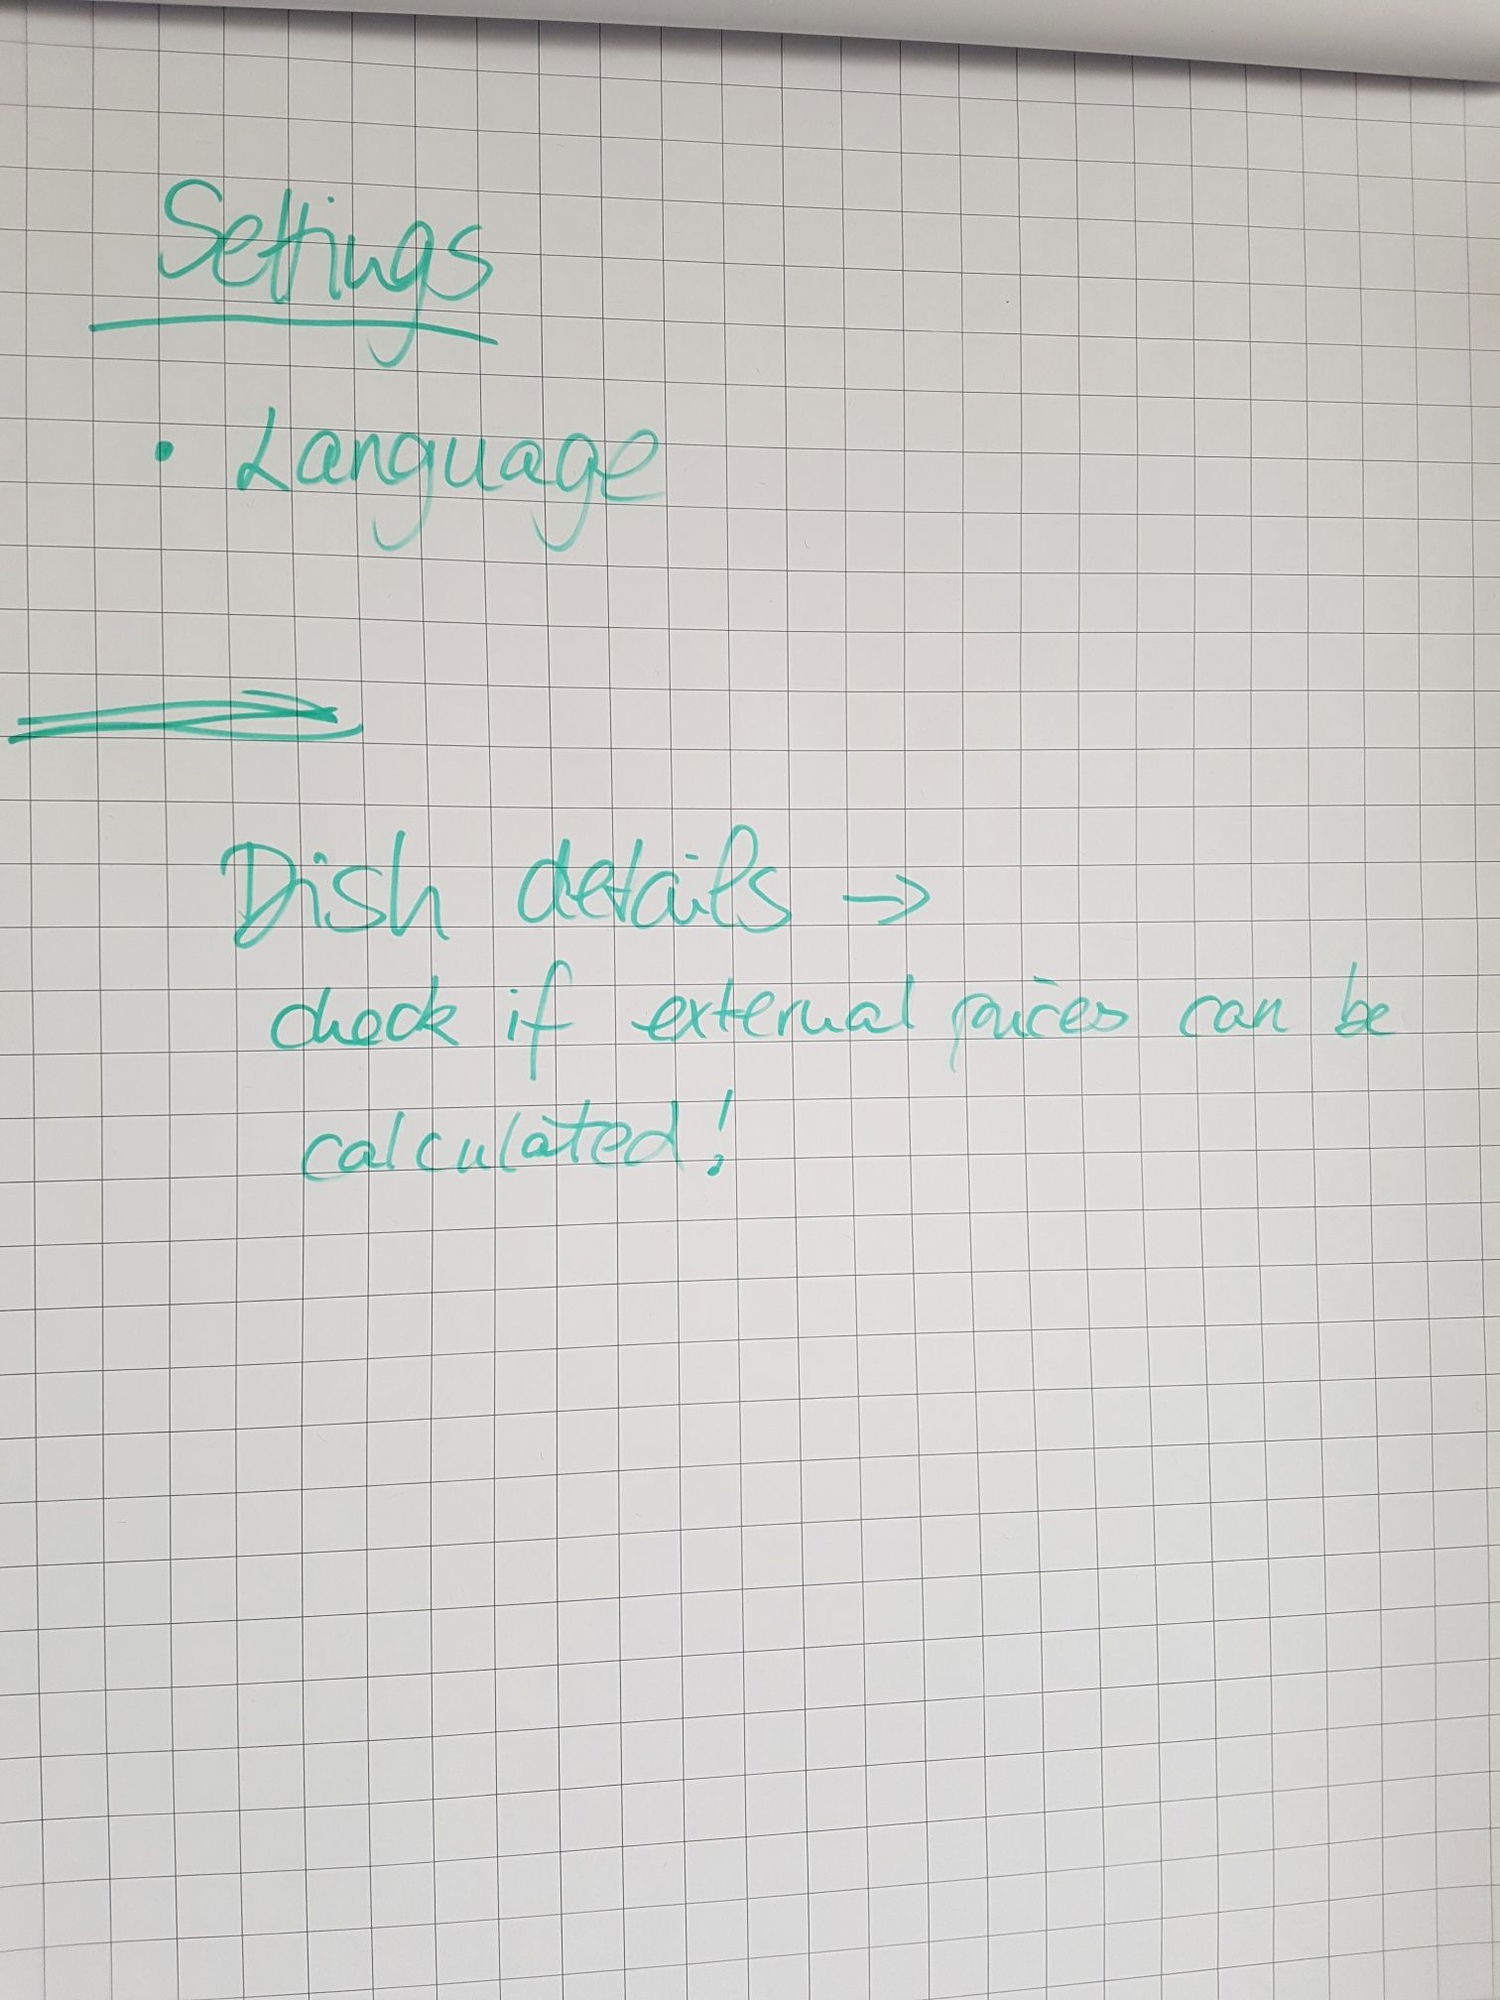 Settings
• Language
Dish details →
check if external prices can be
calculated!